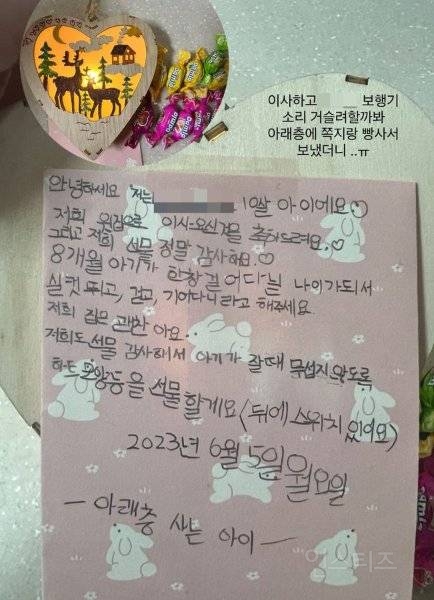 이사하고 보행기
소리 거슬려할까봐
아래층에 쪽지랑 빵사서
보냈더니 ..ㅠ
안녕하세요 저는 10살 아이에요♡
저희 윗집으로 이사오신걸 축하드려요.♡
그리고 저희 선물 정말 감사해요.♡
8개월 아기가 한창 걸어다닐 나이가 되서
실컷 뛰고, 걷고, 기어다니라고 해주세요.
저희 집은 괜찬아요.
저희도 선물 감사해서 아기가 잘때 무섭지 않도록
하트 모양등을 선물 할게요(뒤에 스위치 있어요)
2023년 6월 5일 월요일
- 아래층 사는 아이 -
인스티즈